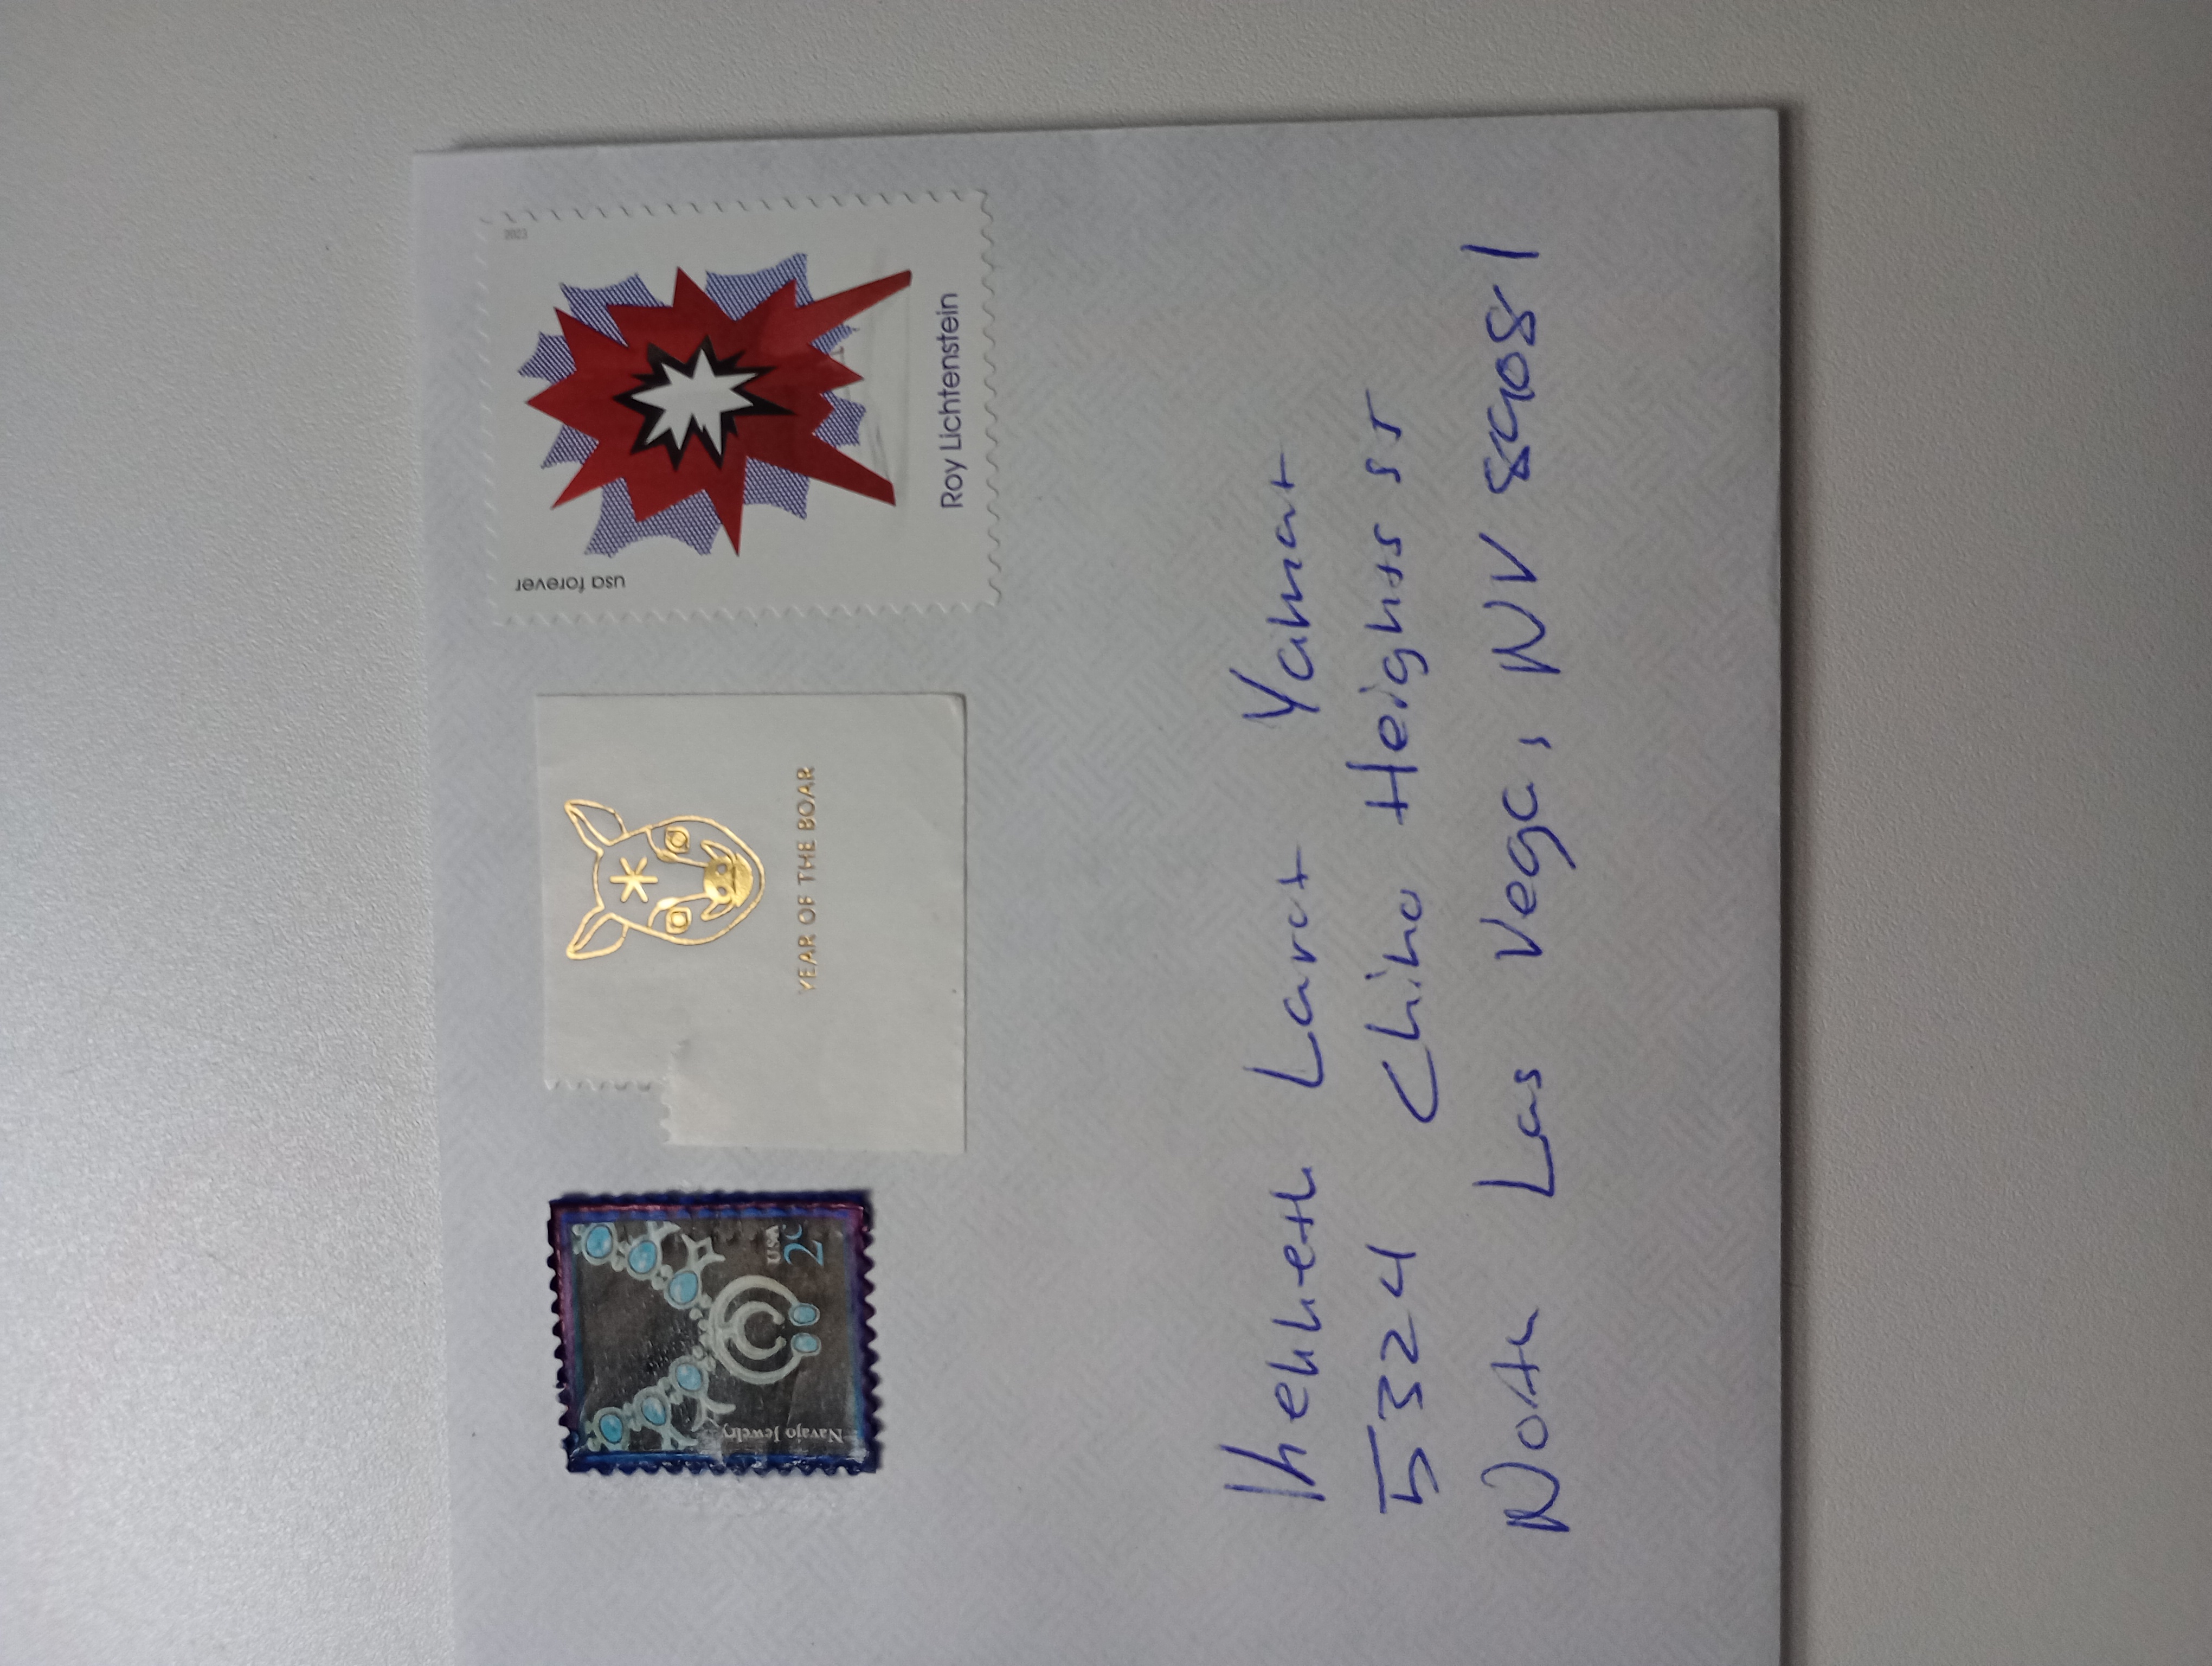 Navajo Jewelry
USA
2c
YEAR OF THE BOAR
usa forever
Roy Lichtenstein
2023
Kenneth Larot Yamat
5324 Chino Heights ST
North Las Vegas, NV 89081